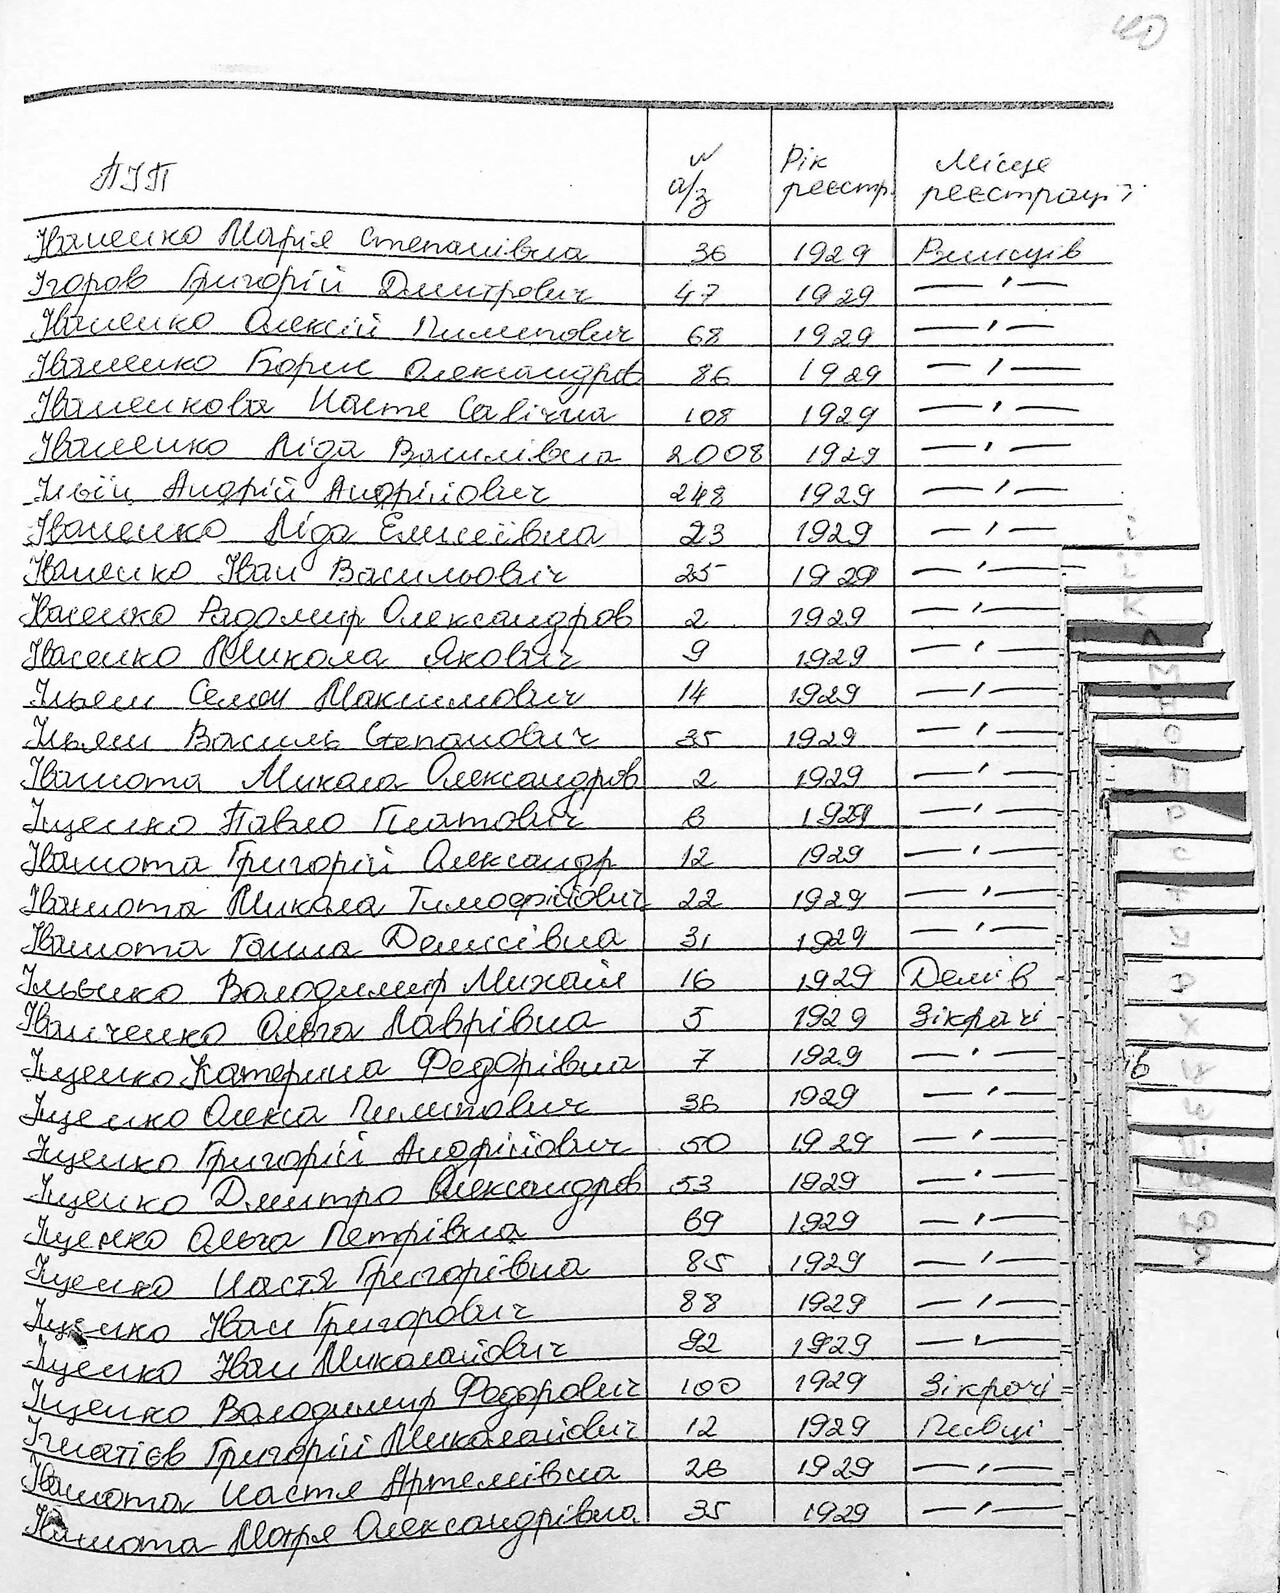 40
ПІП № а/з Рік реєстр. Місце реєстрації
Іваненко Марія Степанівна 36 1929 Ржищів
Ігоров Григорій Дмитрович 47 1929 — " —
Іваненко Олексій Пилипович 68 1929 — " —
Іваненко Борис Олександров 86 1929 — " —
Іваненкова Настя Савічна 108 1929 — " —
Іваненко Ліда Василівна 2008 1929 — " —
Ільїн Андрій Андрійович 248 1929 — " —
Іваненко Ліда Елисеївна 23 1929 — " —
Іваненко Іван Васильович 25 1929 — " —
Радомир Олександров 2 1929 — " —
Микола Якович 9 1929 — " —
Ільяш Семен Максимович 14 1929 — " —
Ільяш Василь Степанович 35 1929 — " —
Івашота Микола Олександров 2 1929 — " —
Іщенко Павло Платович 6 1929 — " —
Івашота Григорій Олександр 12 1929 — " —
Івашота Микола Тимофійович 22 1929 — " —
Івашота Ганна Денисівна 31 1929 — " —
Ільєнко Володимир Михайл 16 1929
Іванченко Ольга Лаврівна 5 1929 Зікрачі
Іщенко Катерина Федорівна 7 1929 — " —
Іщенко Олекса Пилипович 36 1929 — " —
Іщенко Григорій Андрійович 50 1929 — " —
Іщенко Дмитро Олександров 53 1929 — " —
Іщенко Ольга Петрівна 69 1929 — " —
Іщенко Настя Григорівна 85 1929 — " —
Іщенко Іван Григорович 88 1929 — " —
Іщенко Іван Миколайович 92 1929 — " —
Іщенко Володимир Федорович 100 1929 Зікрачі
Ігнатієв Григорій Миколайович 12 1929 Півці
Івашота Настя Артемівна 26 1929 — " —
Івашота Марія Олександрівна 35 1929 — " —